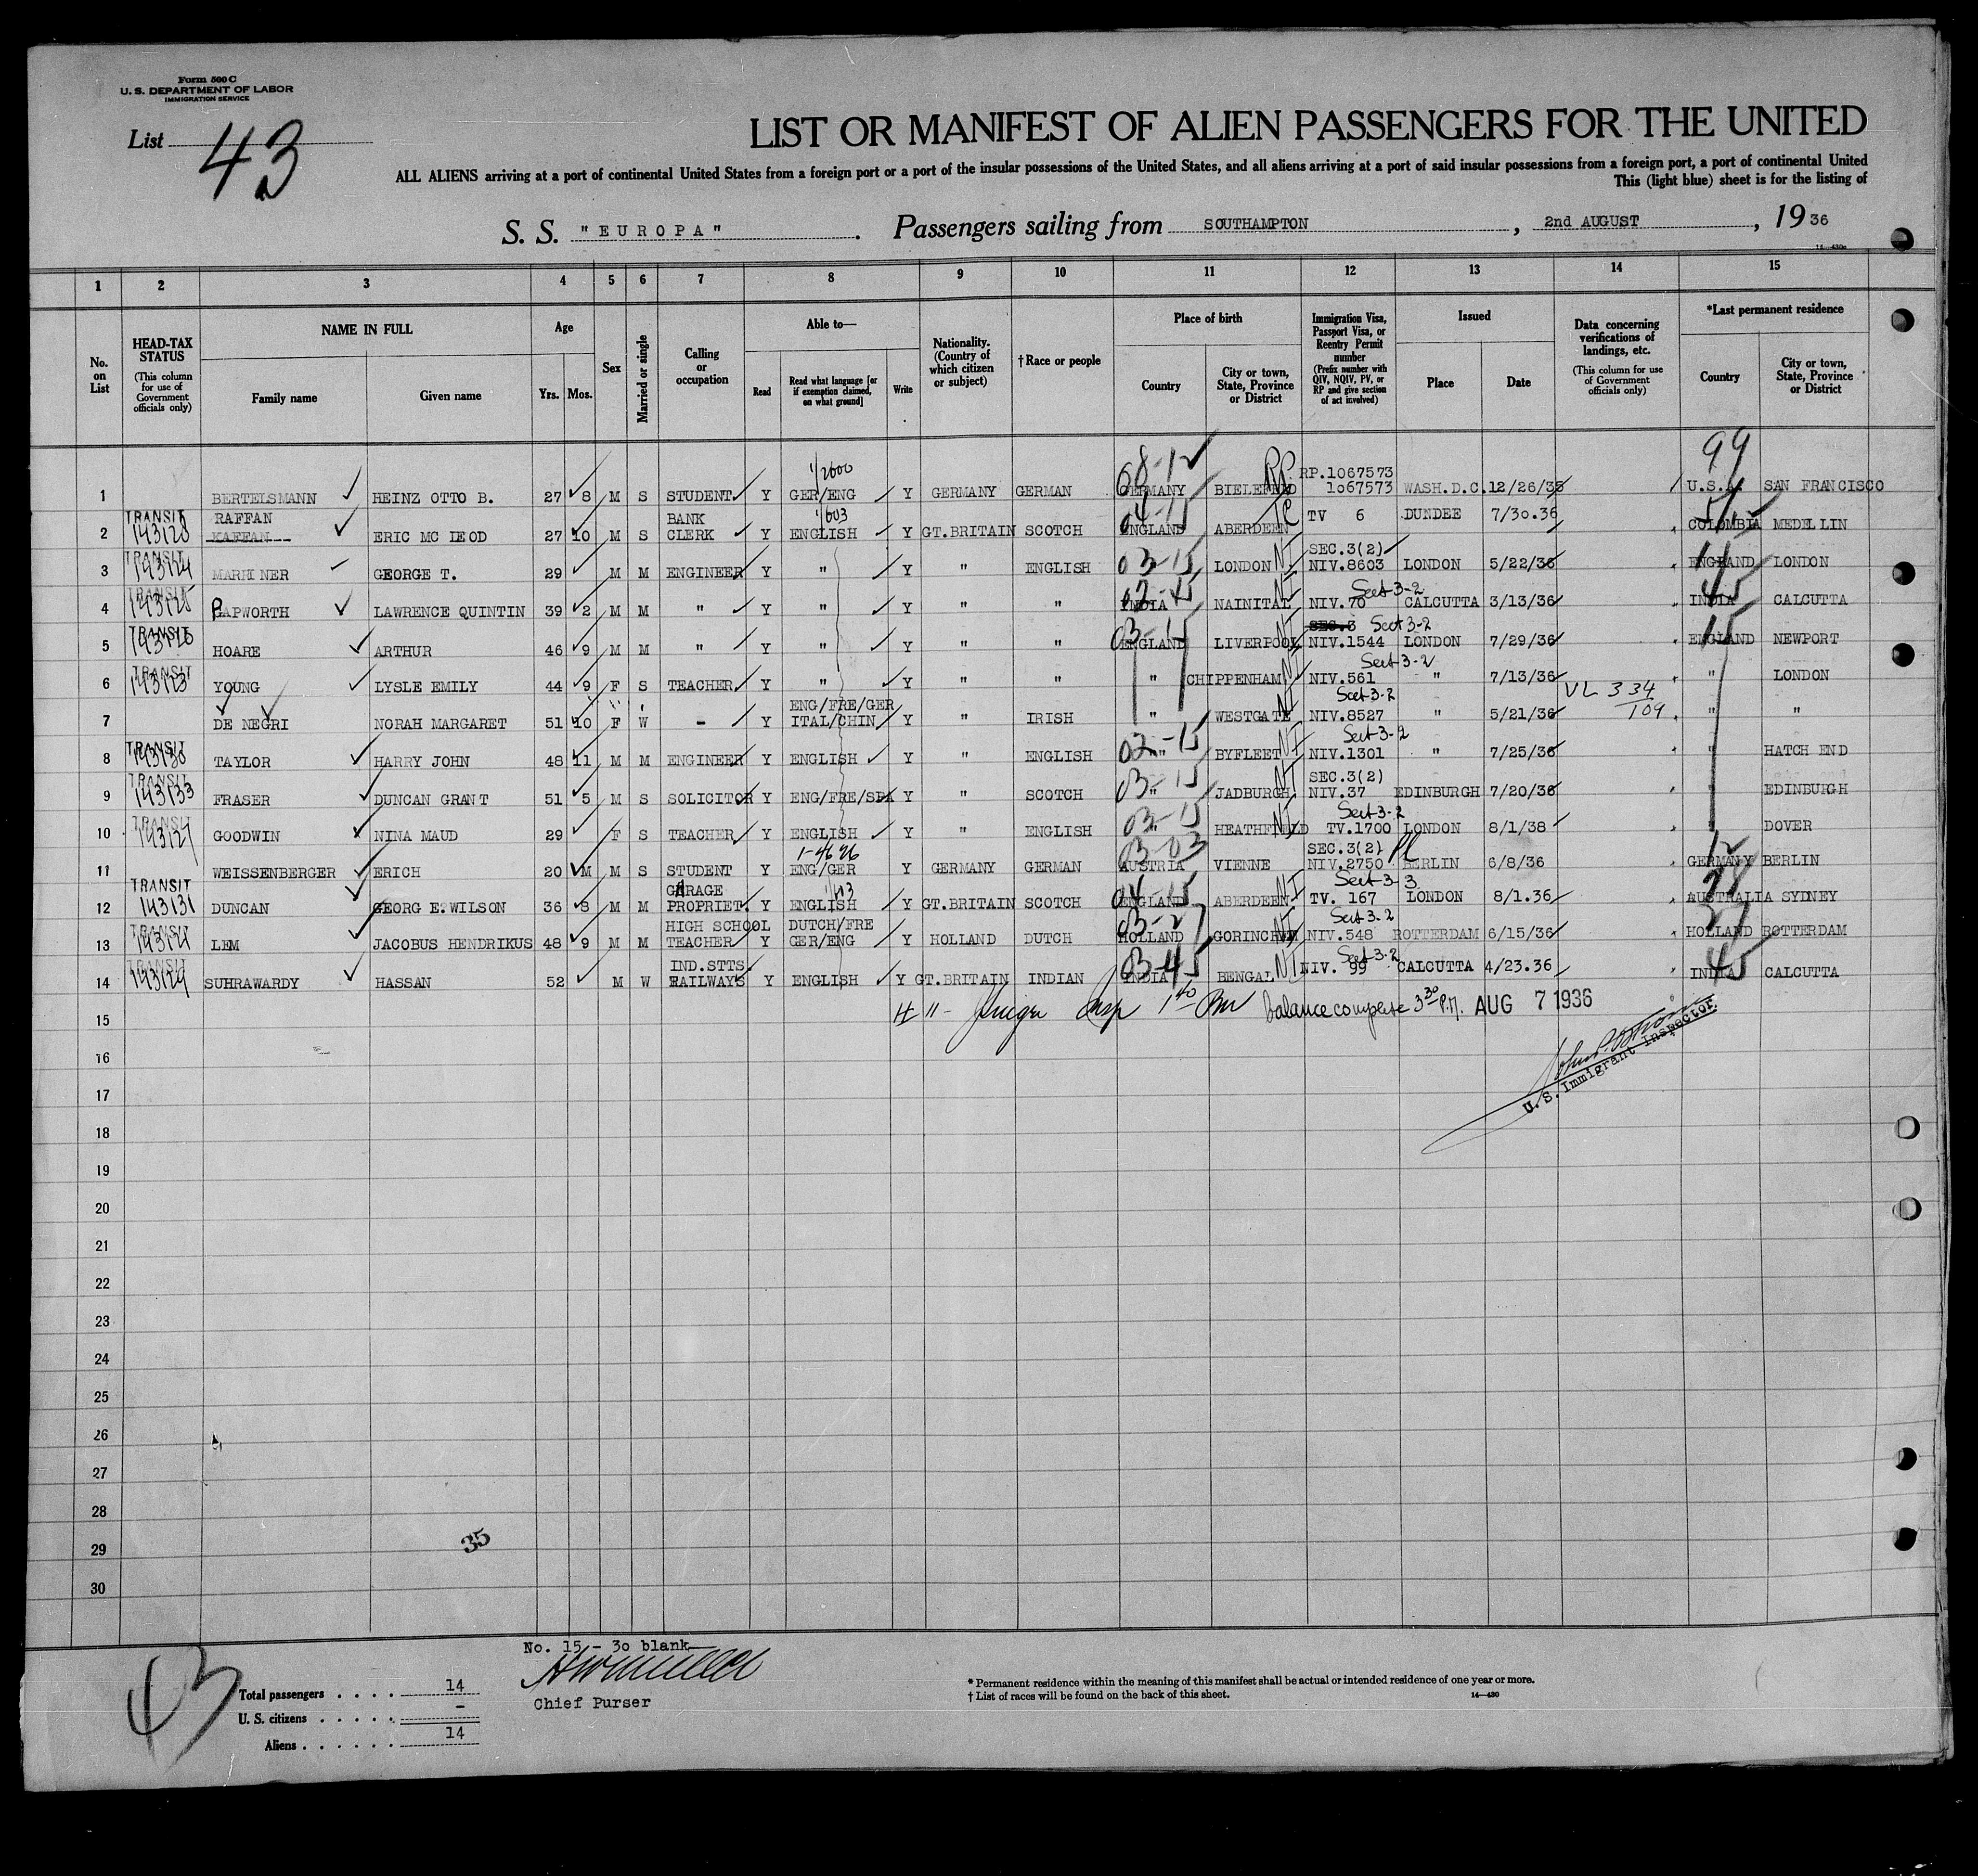 Form 500 C
U. S. DEPARTMENT OF LABOR
IMMIGRATION SERVICE
List 43
LIST OR MANIFEST OF ALIEN PASSENGERS FOR THE UNITED
ALL ALIENS arriving at a port of continental United States from a foreign port or a port of the insular possessions of the United States, and all aliens arriving at a port of said insular possessions from a foreign port, a port of continental United
This (light blue) sheet is for the listing of
S. S. "EUROPA". Passengers sailing from SOUTHAMPTON, 2nd AUGUST, 1936
1 2 3 4 5 6 7 8 9 10 11 12 13 14 15
No. on List
HEAD-TAX STATUS (This column for use of Government officials only)
NAME IN FULL Family name Given name
Age Yrs. Mos.
Sex
Married or single
Calling or occupation
Able to— Read Read what language [or if exemption claimed, on what ground] Write
Nationality. (Country of which citizen or subject)
†Race or people
Place of birth Country City or town, State, Province or District
Immigration Visa, Passport Visa, or Reentry Permit number (Prefix number with QIV, NQIV, PV, or RP and give section of act involved)
Issued Place Date
Data concerning verifications of landings, etc. (This column for use of Government officials only)
*Last permanent residence Country City or town, State, Province or District
99
1 BERTELSMANN HEINZ OTTO B. 27 8 M S STUDENT Y GER/ENG Y GERMANY GERMAN GERMANY BIELEFELD RP.1067573 1067573 WASH.D.C. 12/26/35 U.S.A. SAN FRANCISCO
2 TRANSIT 143128 RAFFAN KAFFAN ERIC MC LEOD 27 10 M S BANK CLERK Y ENGLISH Y GT.BRITAIN SCOTCH ENGLAND ABERDEEN TV 6 DUNDEE 7/30.36 COLOMBIA MEDELLIN
3 TRANSIT 143124 MARRINER GEORGE T. 29 M M ENGINEER Y " Y " ENGLISH 03-15 LONDON SEC.3(2) NIV.8603 LONDON 5/22/36 ENGLAND LONDON
4 TRANSIT 143125 PAPWORTH LAWRENCE QUINTIN 39 2 M M " Y " Y " " INDIA NAINITAL Sect 3-2 NIV.70 CALCUTTA 3/13/36 INDIA CALCUTTA
5 TRANSIT HOARE ARTHUR 46 9 M M " Y " Y " " ENGLAND LIVERPOOL SEC.3 Sect 3-2 NIV.1544 LONDON 7/29/36 ENGLAND NEWPORT
6 TRANSIT 143123 YOUNG LYSLE EMILY 44 9 F S TEACHER Y " Y " " " CHIPPENHAM Sect 3-2 NIV.561 " 7/13/36 " LONDON
7 DE NEGRI NORAH MARGARET 51 10 F W - Y ENG/FRE/GER ITAL/CHIN Y " IRISH " WESTGATE Sect 3-2 NIV.8527 " 5/21/36 VL 334/109 " "
8 TRANSIT 143130 TAYLOR HARRY JOHN 48 11 M M ENGINEER Y ENGLISH Y " ENGLISH " BYFLEET Sect 3-2 NIV.1301 " 7/25/36 " HATCH END
9 TRANSIT 143133 FRASER DUNCAN GRANT 51 5 M S SOLICITOR Y ENG/FRE/SPA Y " SCOTCH " JADBURGH SEC.3(2) NIV.37 EDINBURGH 7/20/36 " EDINBURGH
10 TRANSIT 143127 GOODWIN NINA MAUD 29 F S TEACHER Y ENGLISH Y " ENGLISH " HEATHFIELD Sect 3-2 TV.1700 LONDON 8/1/38 " DOVER
11 WEISSENBERGER ERICH 20 M M S STUDENT Y 1-4696 ENG/GER Y GERMANY GERMAN AUSTRIA VIENNE SEC.3(2) NIV.2750 BERLIN 6/8/36 GERMANY BERLIN
12 TRANSIT 143131 DUNCAN GEORG E.WILSON 36 3 M M GARAGE PROPRIET. Y ENGLISH Y GT.BRITAIN SCOTCH ENGLAND ABERDEEN Sect 3-3 TV. 167 LONDON 8/1.36 AUSTRALIA SYDNEY
13 TRANSIT 143121 LEM JACOBUS HENDRIKUS 48 9 M M HIGH SCHOOL TEACHER Y DUTCH/FRE GER/ENG Y HOLLAND DUTCH HOLLAND GORINCHEM Sect 3-2 NIV.548 ROTTERDAM 6/15/36 HOLLAND ROTTERDAM
14 TRANSIT 143129 SUHRAWARDY HASSAN 52 M W IND.STTS. RAILWAYS Y ENGLISH Y GT.BRITAIN INDIAN INDIA BENGAL Sect 3-2 NIV. 99 CALCUTTA 4/23.36 INDIA CALCUTTA
15 balance complete 3 30 P.M. AUG 7 1936
16
U. S. Immigrant Inspector
17
18
19
20
21
22
23
24
25
26
27
28
29 35
30
No. 15 - 30 blank
43
Total passengers . . . . 14
Chief Purser
U. S. citizens . . . . . -
Aliens . . . . . . 14
* Permanent residence within the meaning of this manifest shall be actual or intended residence of one year or more.
† List of races will be found on the back of this sheet. 14—430